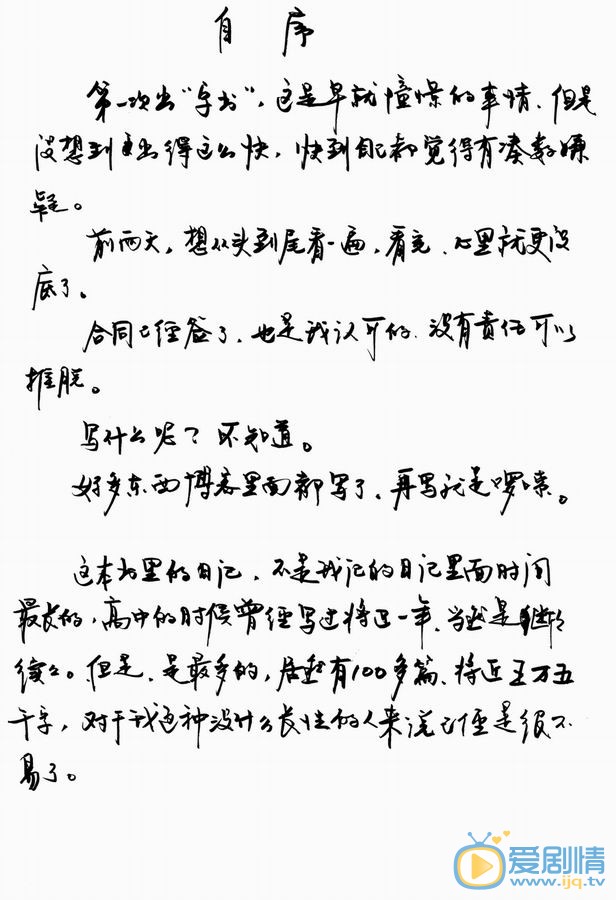 自 序
第一次出“字书”，这是早就憧憬的事情、但是
没想到会出得这么快，快到自己都觉得有凑数嫌
疑。
前两天，想从头到尾看一遍，看完、心里就更没
底了。
合同已经签了、也是我认可的、没有责任可以
推脱。
写什么呢？不知道。
好多东西博客里面都写了、再写就是啰嗦。
这本书里的日记、不是我记的日记里面时间
最长的，高中的时候曾经写过将近一年、当然是断断
续续。但是、是最多的，居然有100多篇、将近三万五
千字，对于我这种没什么长性的人来说已经是很不
易了。
爱剧情
www.ijq.tv